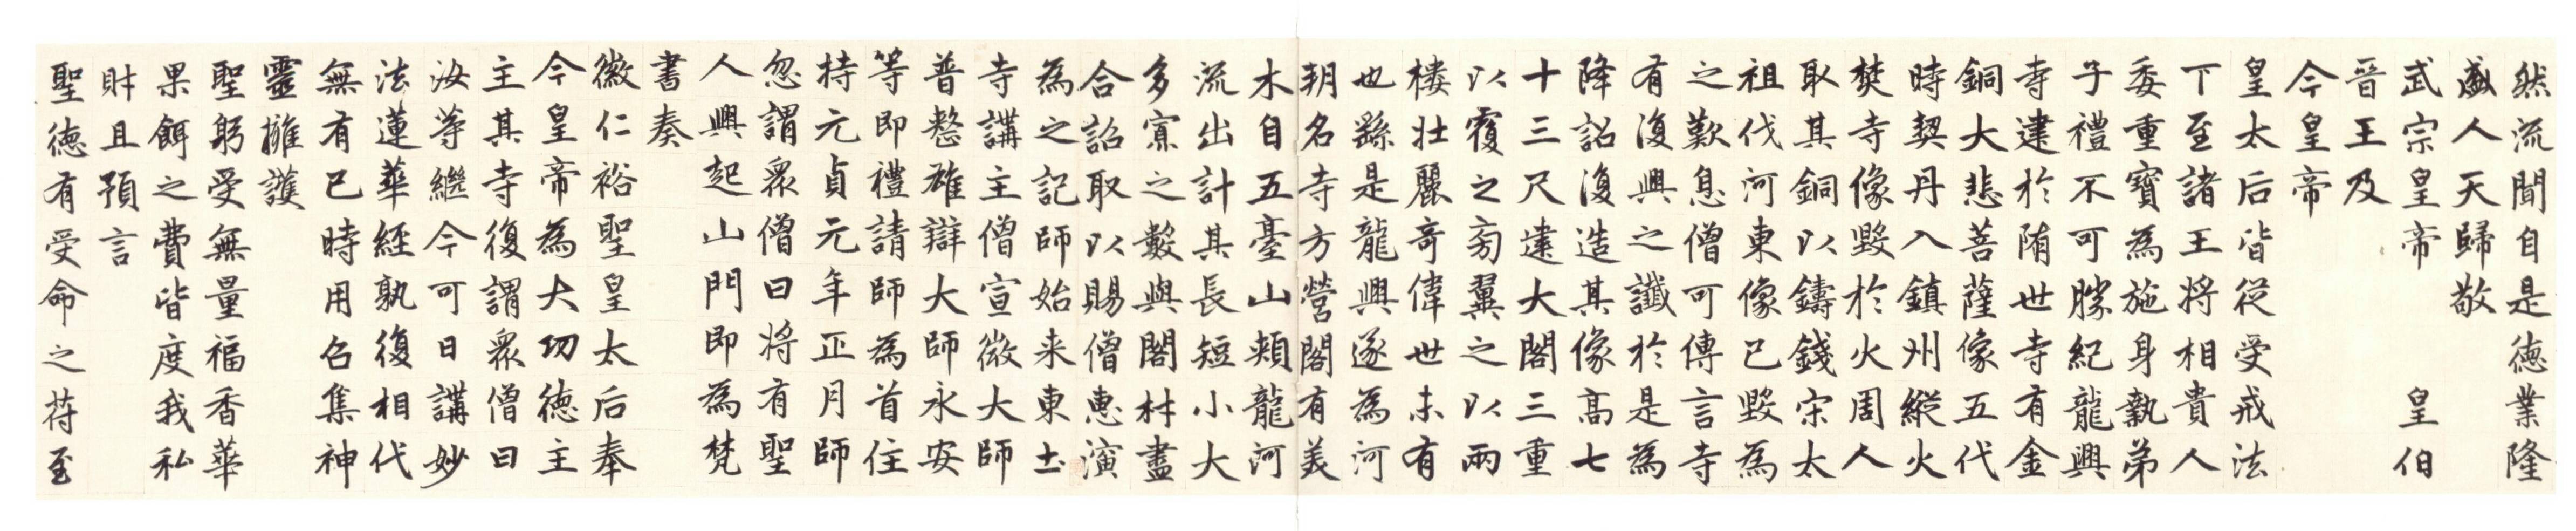 然流聞自是德業隆
盛人天歸敬
武宗皇帝　皇伯
晉王及
今皇帝
皇太后皆從受戒法
下至諸王將相貴人
委重寶為施身執弟
子禮不可勝紀龍興
寺建於隋世寺有金
銅大悲菩薩像五代
時契丹入鎮州縱火
焚寺像毀於火周人
取其銅以鑄錢宋太
祖伐河東像已毀為
之歎息僧可傳言寺
有復興之讖於是為
降詔復造其像高七
十三尺建大閣三重
以覆之旁翼之以兩
樓壯麗奇偉世未有
也繇是龍興遂為河
朔名寺方營閣有美
木自五臺山頰龍河
流出計其長短小大
多寡之數與閣材盡
合詔取以賜僧惠演
為之記師始来東土
寺講主僧宣微大師
普整雄辯大師永安
等即禮請師為首住
持元貞元年正月師
忽謂眾僧曰將有聖
人興起山門即為梵
書奏
徽仁裕聖皇太后奉
今皇帝為大功德主
主其寺復謂眾僧曰
汝等繼今可日講妙
法蓮華經孰復相代
無有已時用召集神
靈擁護
聖躬受無量福香華
果餌之費皆度我私
財且預言
聖德有受命之符至